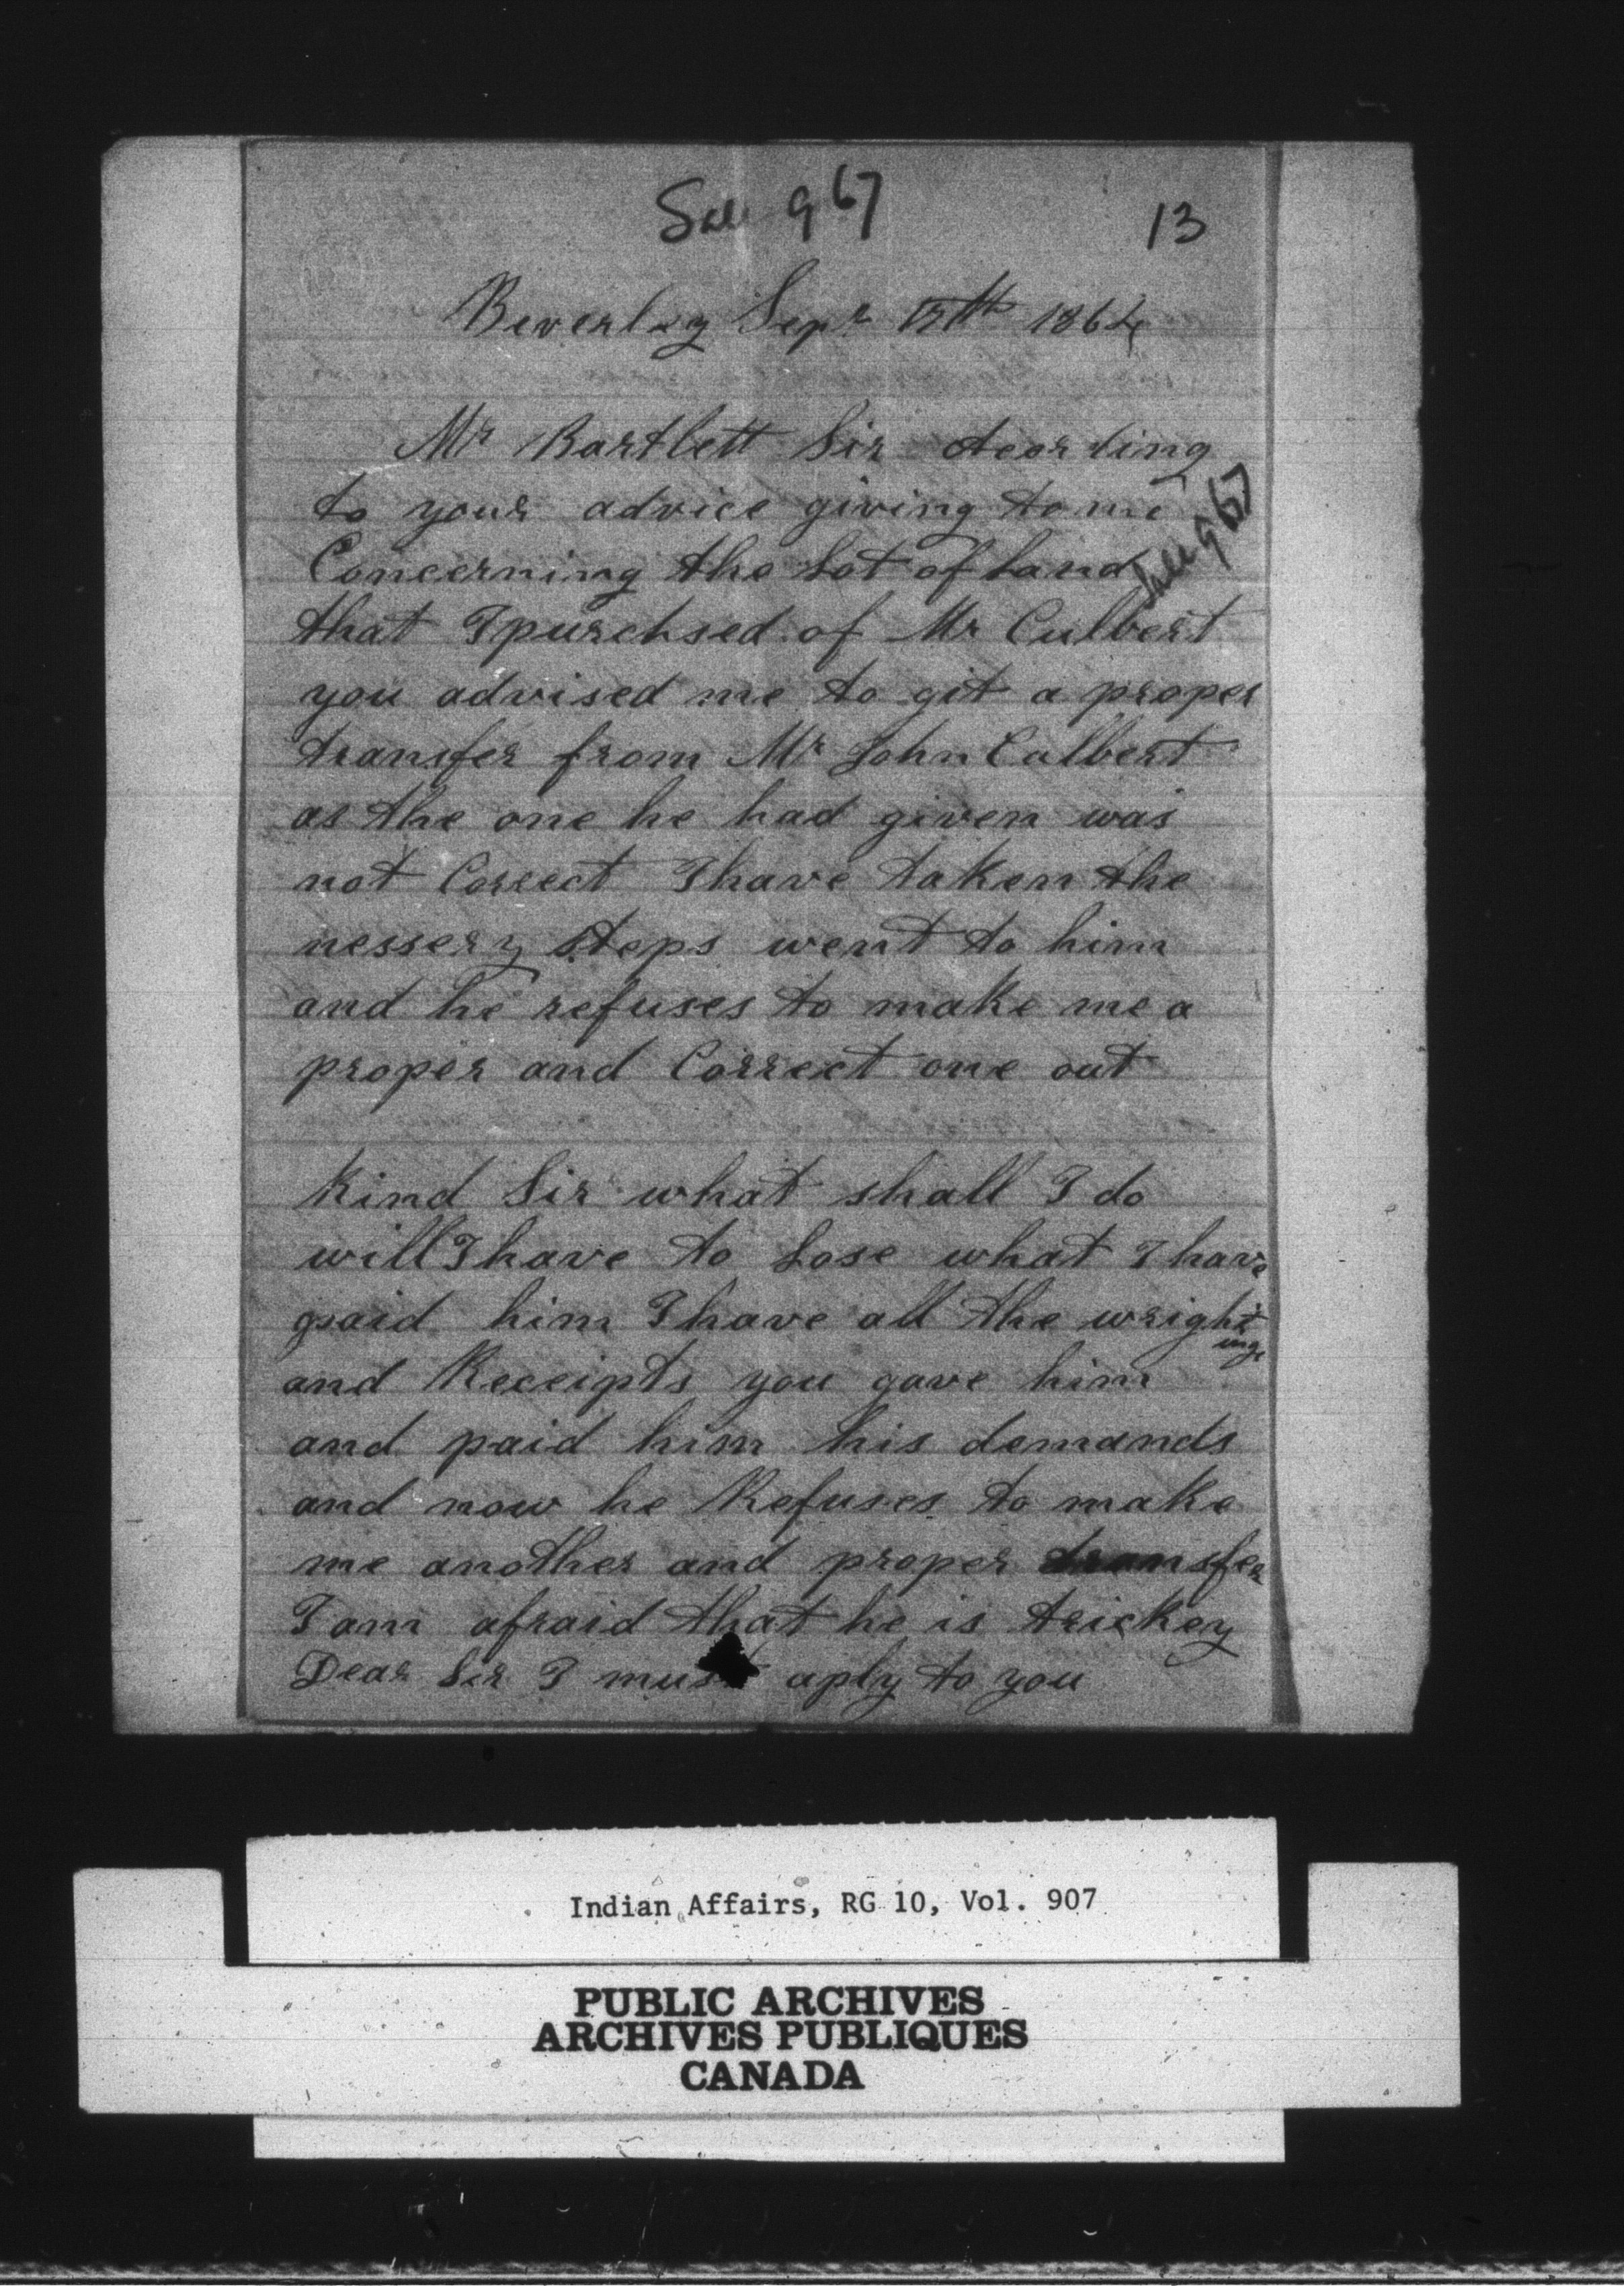 Sale 967
13
Beverley Sepr 1864
Mr Bartlett Sir Acording
to your advice giving to me
Sale 967
Concerning the Lot of Land
that I purchsed of Mr Culbert
you advised me to git a proper
transfer from Mr John Culbert
as the one he had given was
not Correct I have taken the
nessery steps went to him
and he refuses to make me a
proper and Correct one out
Kind Sir what shall I do
will I have to Lose what I have
paid him I have all the wrightings
and Receipts you gave him
and paid him his demands
and now he Refuses to make
me another and proper transfer
I am afraid that he is trickey
Dear Sir I must aply to you
Indian Affairs, RG 10, Vol. 907
PUBLIC ARCHIVES
ARCHIVES PUBLIQUES
CANADA